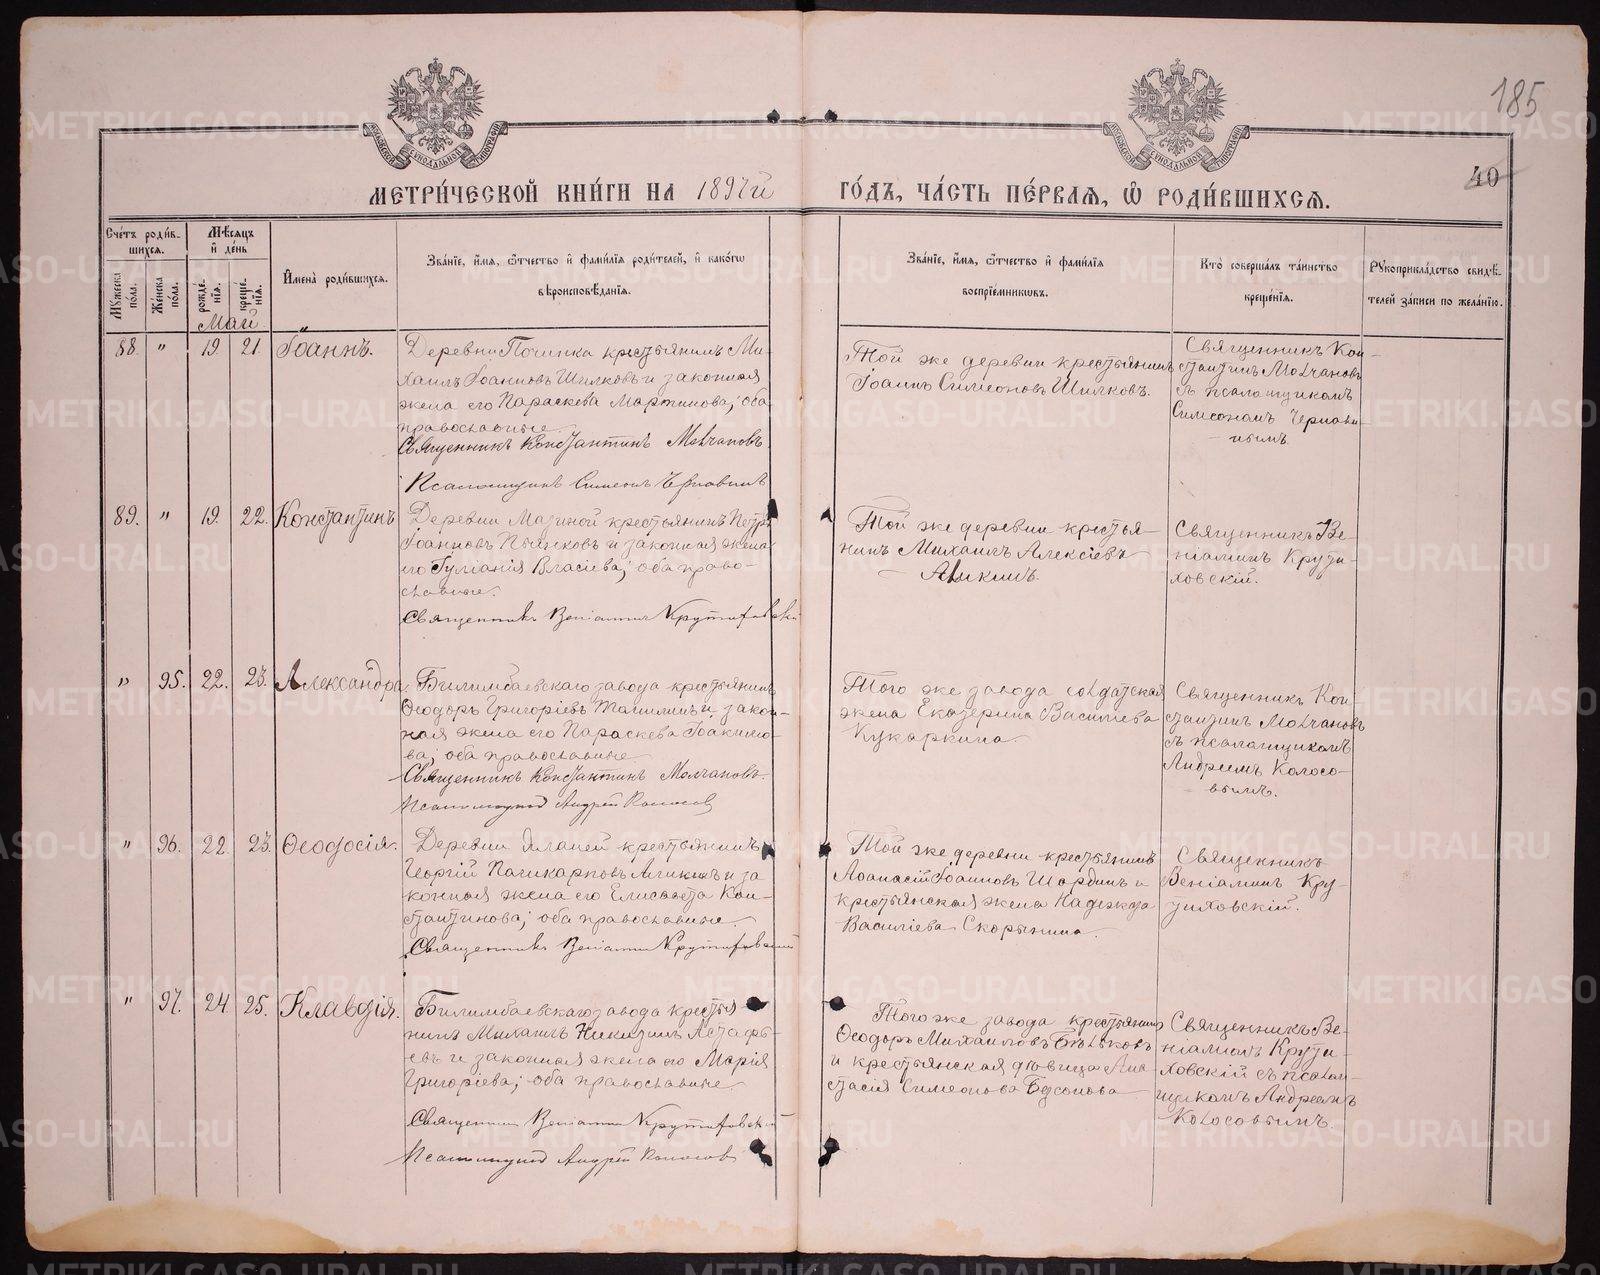 185
40
МОСКОВСКОЙ СѴНОДАЛЬНОЙ ТИПОГРАФІИ
МОСКОВСКОЙ СѴНОДАЛЬНОЙ ТИПОГРАФІИ
МЕТРИ́ЧЕСКОЙ КНИ́ГИ НА 1897й ГО́ДЪ, ЧА́СТЬ ПЕ́РВАЯ, Ѽ РОДИ́ВШИХСѦ.
Сче́тъ роди́в-
шихся.
Мѣ́сяцъ
и҆ де́нь
Му́жеска
по́ла.
Же́нска
по́ла.
рожде́-
нїѧ.
креще́-
нїѧ.
И҆мена̀ роди́вшихся.
Зва́нїе, и҆́мя, ѻ҆́тчество и҆ фами́лїя роди́телей, и҆ како́гѡ
вѣроисповѣ́данїя.
Зва́нїе, и҆́мя, ѻ҆́тчество и҆ фами́лїя
воспрїе́мниковъ.
Кто̀ соверша́лъ та́инство
креще́нїя.
Рꙋкоприкла́дство свидѣ́-
телей за́писи по жела́нїю.
Май
88. " 19. 21. Іоаннъ.
Деревни Починка крестьянинъ Ми-
хаилъ Іоанновъ Шилковъ и законная
жена его Параскева Мартинова; оба
православные.
Священникъ Константинъ Молчановъ.
Псаломщикъ Симеонъ Чернавинъ
Той же деревни крестьянинъ
Іоаннъ Симеоновъ Шилковъ.
Священникъ Кон-
стантинъ Молчановъ
съ псаломщикомъ
Симеономъ Чернави-
нымъ.
89. " 19. 22. Константинъ
Деревни Мазиной крестьянинъ Петръ
Іоанновъ Пьянковъ и законная жена
его Гуліанія Власіева; оба право-
славные.
Священникъ Веніаминъ Крутиховскій
Той же деревни крестья-
нинъ Михаилъ Алексіевъ
Аликинъ.
Священникъ Ве-
ніаминъ Крути-
ховскій.
" 95. 22. 23. Александра
Билимбаевскаго завода крестьянинъ
Ѳеодоръ Григоріевъ и закон-
ная жена его Параскева Іоакимо-
ва; оба православные
Священникъ Константинъ Молчановъ.
Псаломщикъ Андрей Колосов
Того же завода солдатская
жена Екатерина Василіева
Кукаркина.
Священникъ Кон-
стантинъ Молчановъ
съ псаломщикомъ
Андреемъ Колосо-
вымъ.
" 96. 22. 23. Ѳеодосія.
Деревни крестьянинъ
Георгій Поликарповъ Аликинъ и за
конная жена его Елисавета Кон-
стантинова; оба православные.
Священникъ Веніаминъ Крутиховский
Той же деревни крестьянинъ
Аѳанасій Іоанновъ Шардинъ и
крестьянская жена Надежда
Василіева Скорынина.
Священникъ
Веніаминъ Кру-
тиховскій.
" 97. 24. 25. Клавдія.
Билимбаевскаго завода крестья
нинъ Михаилъ Никитинъ Астафь-
евъ и законная жена его Марія
Григоріева; оба православные.
Священникъ Веніаминъ Крутиховскій
Псаломщикъ Андрей Колосов
Того же завода крестьянинъ
Ѳеодоръ Михаиловъ Бѣльковъ
и крестьянская дѣвица Ана
стасія Симеонова
Священникъ Ве-
ніаминъ Крути-
ховскій съ псалом-
щикомъ Андреемъ
Колосовымъ.
METRIKI.GASO-URAL.RU